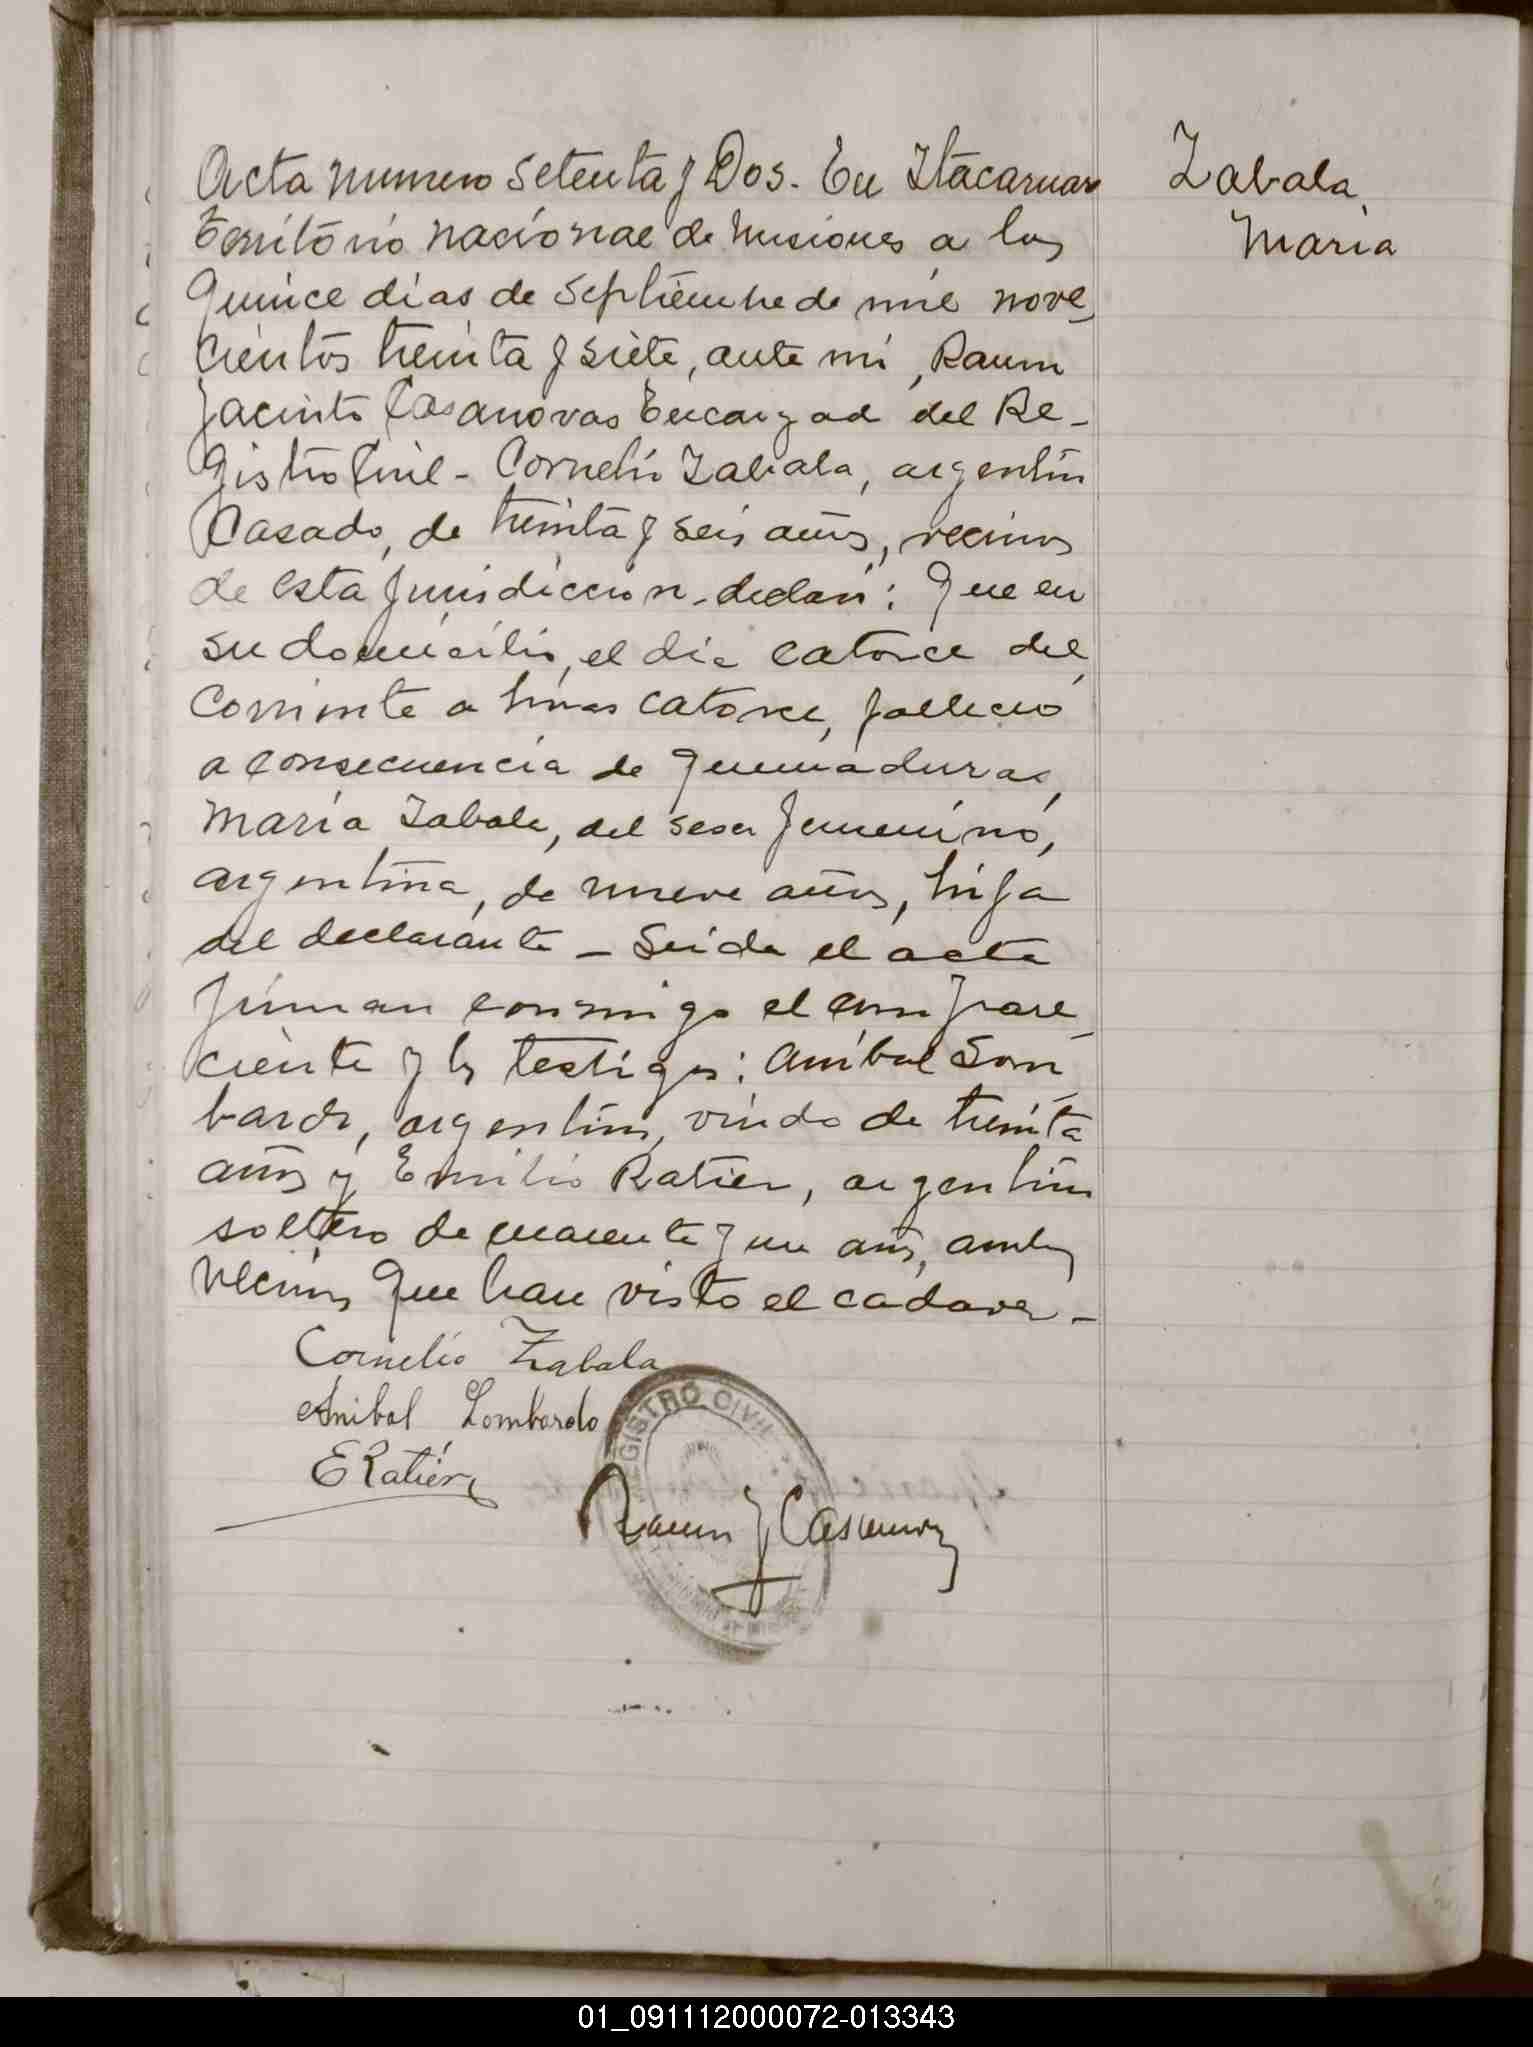 Acta numero Setenta y Dos. En Itacaruare
territorio nacional de Misiones a los
quince dias de Septiembre de mil nove
cientos treinta y siete, ante mi, Ramon
Jacinto Casanovas Encargado del Re-
gistro Civil - Cornelio Zabala, argentino
Casado, de treinta y seis años, vecino
de esta jurisdiccion, declaró: Que en
su domicilio, el dia catorce del
corriente a horas catorce, falleció
a consecuencia de quemaduras,
Maria Zabala, del sexo femenino,
argentina, de nueve años, hija
del declarante - Leida el acta
firman conmigo el compare
ciente y los testigos: Anibal Lom
bardo, argentino, viudo de treinta
años y Emilio Ratier, argentino
soltero de cuarenta y un años, ambos
vecinos que han visto el cadaver -
Cornelio Zabala
Anibal Lombardo
E Ratier
Ramon J Casanovas
REGISTRO CIVIL
Zabala,
Maria
01_091112000072-013343